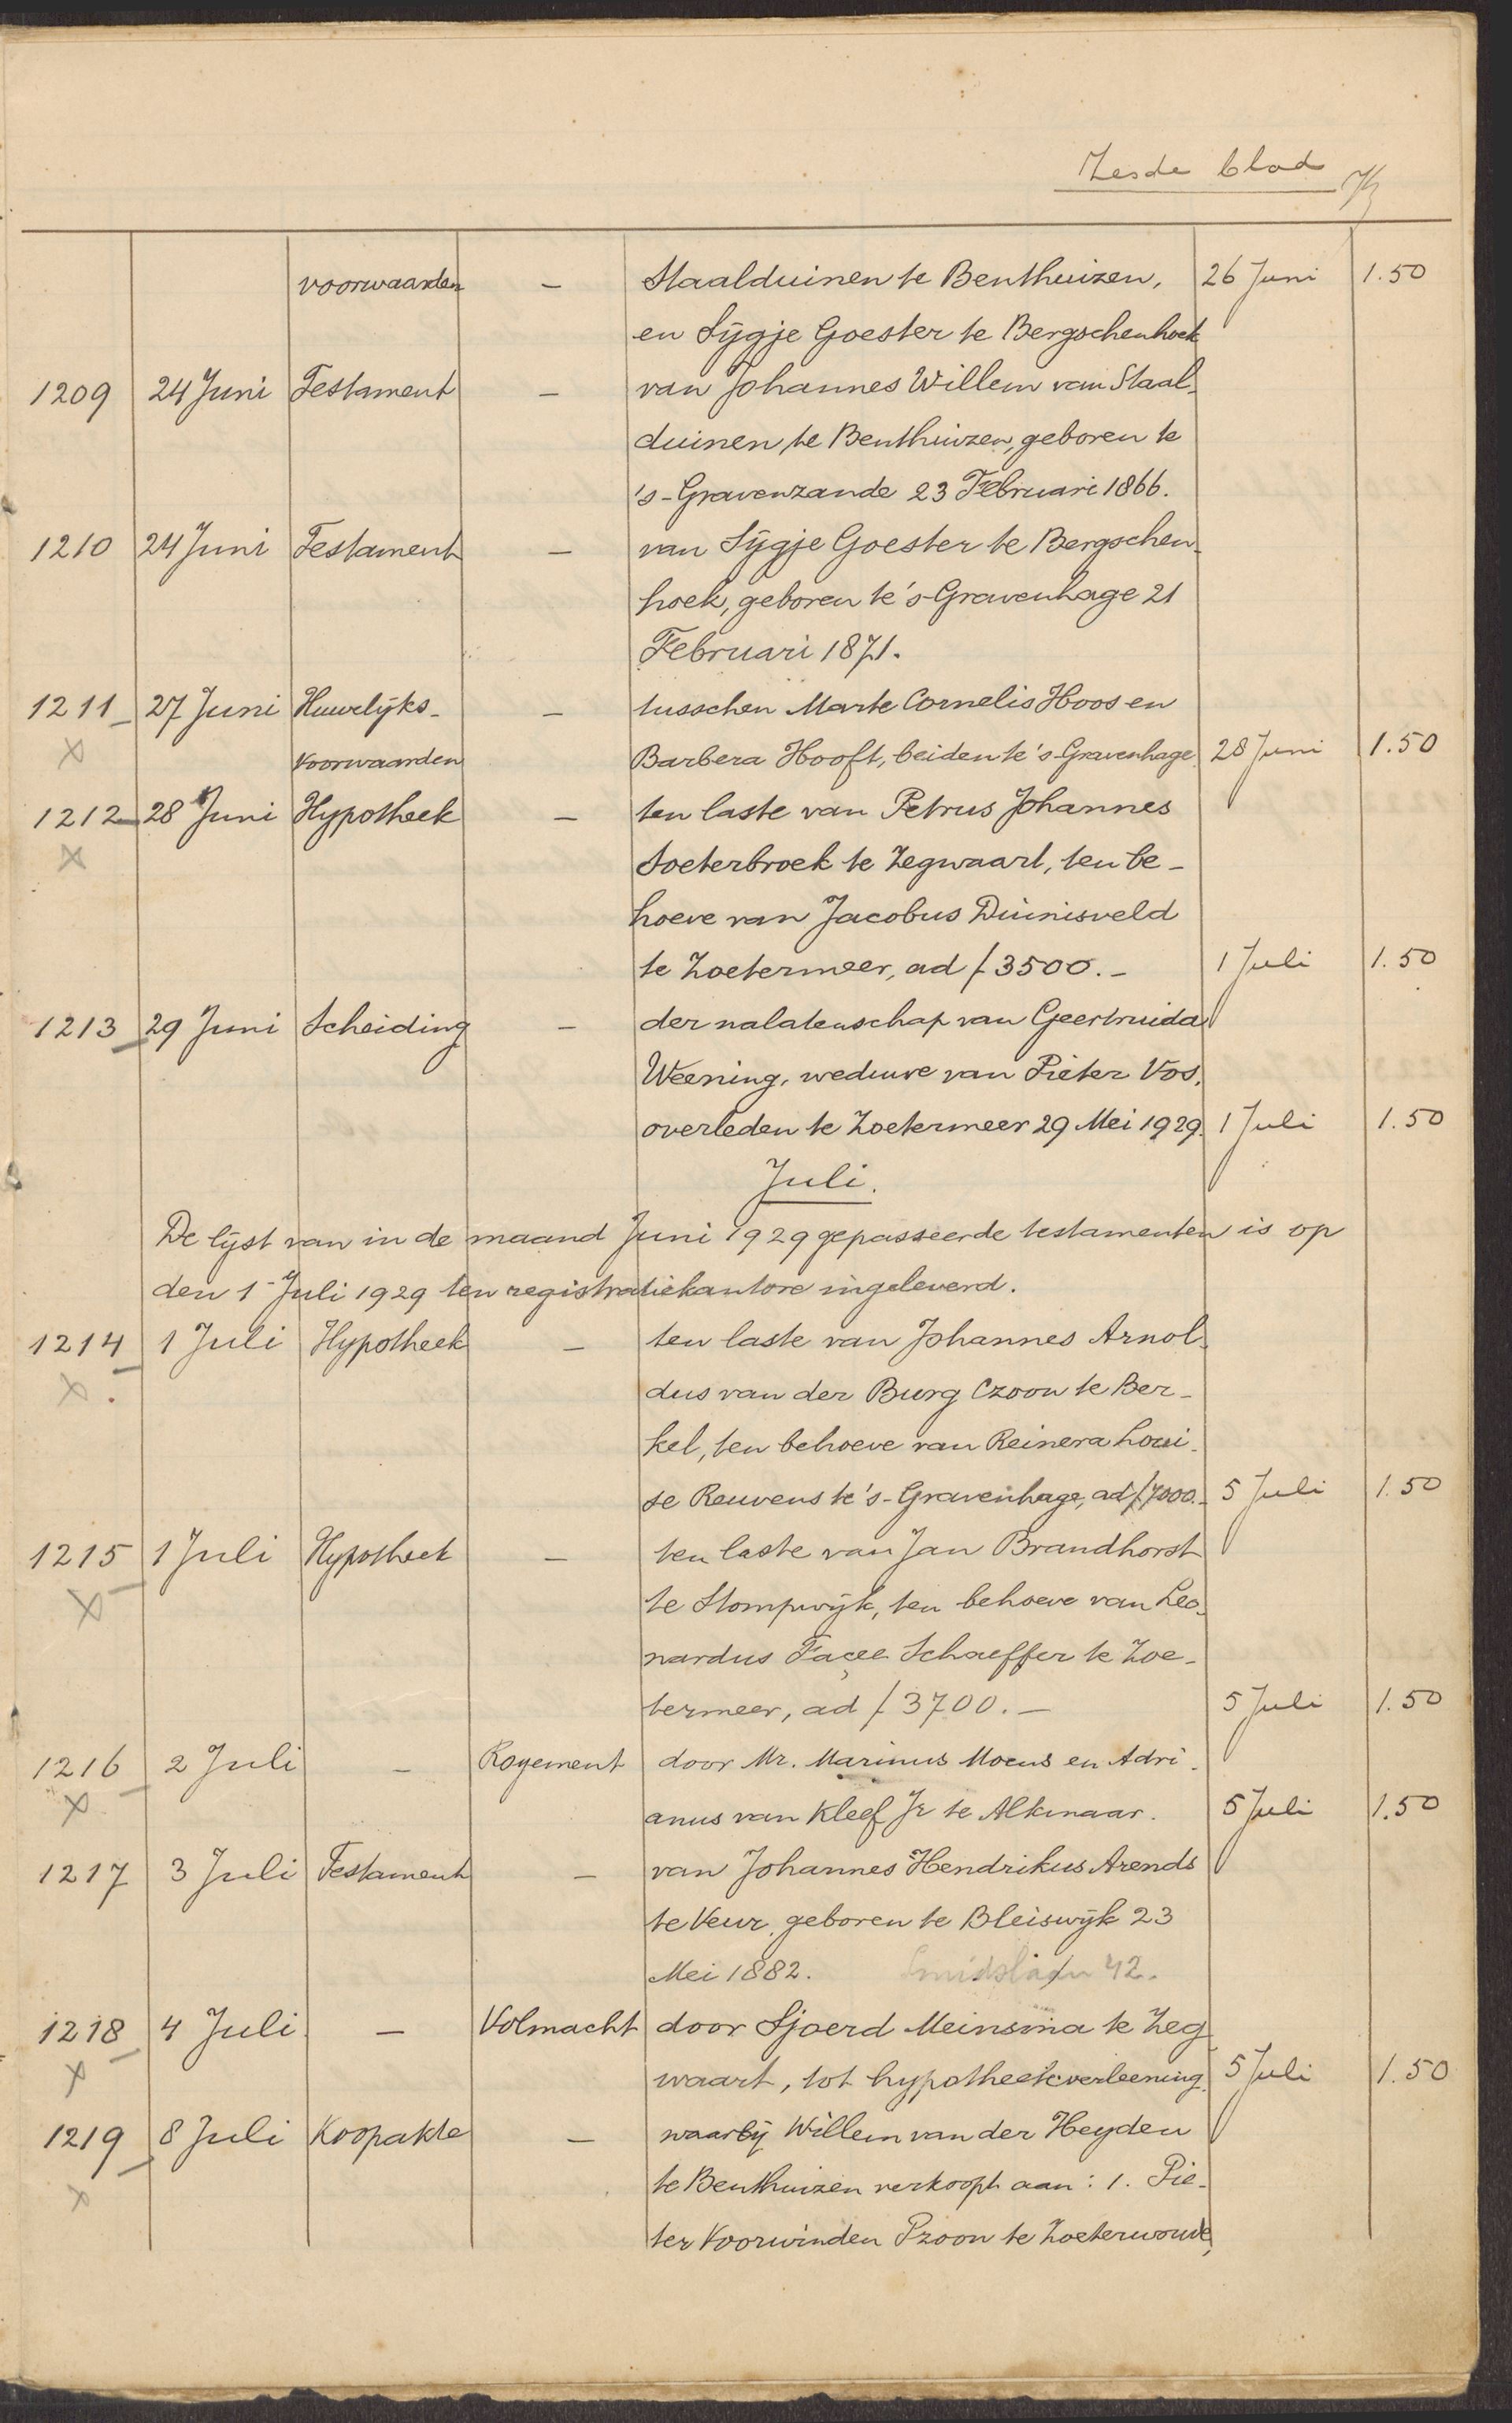 Zesde blad
voorwaarden — Staalduinen te Benthuizen, 26 Juni 1.50
en Sijgje Goester te Bergschenhoek
1209 24 Juni Testament — van Johannes Willem van Staal-
duinen te Benthuizen, geboren te
's-Gravenzande 23 Februari 1866.
1210 24 Juni Testament — van Sijgje Goester te Bergschen-
hoek, geboren te 's-Gravenhage 21
Februari 1871.
1211 27 Juni Huwelijks- — tusschen Marte Cornelis Hoos en
x voorwaarden Barbera Hooft, beiden te 's-Gravenhage 28 Juni 1.50
1212 28 Juni Hypotheek — ten laste van Petrus Johannes
x Soeterbroek te Zegwaart, ten be-
hoeve van Jacobus Duinisveld
te Zoetermeer, ad f 3500.- 1 Juli 1.50
1213 29 Juni Scheiding — der nalatenschap van Geertruida
Weening, weduwe van Pieter Vos,
overleden te Zoetermeer 29 Mei 1929. 1 Juli 1.50
Juli.
De lijst van in de maand Juni 1929 gepasseerde testamenten is op
den 1 Juli 1929 ten registratiekantore ingeleverd.
1214 1 Juli Hypotheek — ten laste van Johannes Arnol-
x dus van der Burg Czoon te Ber-
kel, ten behoeve van Reinera Loui-
se Reuvens te 's-Gravenhage, ad f 7000.- 5 Juli 1.50
1215 1 Juli Hypotheek — ten laste van Jan Brandhorst
x te Stompwijk, ten behoeve van Leo-
nardus Façee Schaeffer te Zoe-
termeer, ad f 3700.— 5 Juli 1.50
1216 2 Juli — Royement door Mr. Marinus Moens en Adri-
x anus van Kleef Jr te Alkmaar. 5 Juli 1.50
1217 3 Juli Testament — van Johannes Hendrikus Arends
te Veur, geboren te Bleiswijk 23
Mei 1882. 42.
1218 4 Juli — Volmacht door Sjoerd Meinsma te Zeg
x waart, tot hypotheekverleening. 5 Juli 1.50
1219 8 Juli Koopakte — waarbij Willem van der Heyden
x te Benthuizen verkoopt aan: 1. Pie-
ter Voorwinden Pzoon te Zoeterwoude,